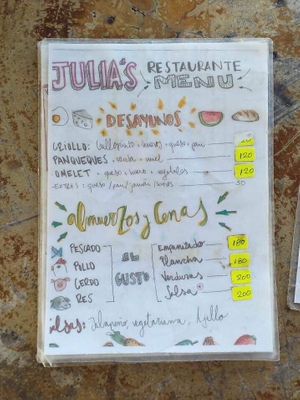 JULIA'S RESTAURANTE
MENU
DESAYUNOS
CRIOLLO: Gallopinto + huevos + queso + pan
PANQUEQUES + miel 120
OMELET + queso + huevo + vegetales 120
EXTRAS: queso / pan / jamón 30
Almuerzos y Cenas
PESCADO
POLLO
CERDO
RES
AL GUSTO
Empanizado 180
Plancha 180
Verduras 200
Salsa 200
Salsas: Jalapeño, vegetariana, Ajillo